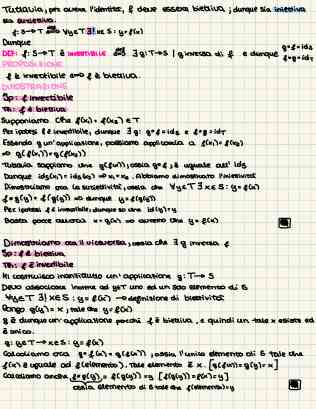 Tuttavia, per avere l'identità, f deve essere biettiva; dunque sia iniettiva
sia suriettiva.
f: S→T ⟺ ∀y∈T ∃! x∈S : y=f(x)
Dunque
DEF: f: S→T è invertibile ⟺ ∃ g: T→S | g inversa di f e dunque g∘f=id_S f∘g=id_T
PROPOSIZIONE
f è invertibile ⟺ f è biettiva.
DIMOSTRAZIONE
Ip: f invertibile
Th: f è biettiva
Supponiamo che f(x₁) = f(x₂) ∈ T
Per ipotesi f è invertibile, dunque ∃ g: g∘f=id_S e f∘g=id_T
Essendo g un'applicazione, possiamo applicarla a f(x₁)=f(x₂)
⇒ g(f(x₁))=g(f(x₂))
Tuttavia sappiamo che g(f(x)), ossia g∘f, è uguale all' id_S
Dunque id_S(x₁)=id_S(x₂) ⇒ x₁=x₂. Abbiamo dimostrato l'iniettività
Dimostriamo ora la suriettività, ossia che ∀y∈T ∃ x∈S : y=f(x)
f∘g(y) = f(g(y)) ⇒ dunque y=f(g(y))
Per ipotesi f è invertibile, dunque so che id(y)=y
Basta porre allora x=g(y) ⇒ avremo che y=f(x)
Dimostriamo ora il viceversa, ossia che ∃ g inversa f
Ip: f è biettiva
Th: f è invertibile
Mi costruisco innanzitutto un'applicazione g: T→S
Devo associare insieme ad y∈T uno ed un solo elemento di S
∀y∈T ∃! x∈S : y=f(x) → definizione di biettività
Pongo g(y)=x, tale che y=f(x)
g è dunque un'applicazione poiché f è biettiva, e quindi un tale x esiste ed
è unico.
g: y∈T → x∈S : y=f(x)
Calcoliamo ora g∘f(x) = g(f(x)), ossia l'unico elemento di S tale che
f(x) è uguale ad f(elemento). Tale elemento è x. [g(f(x))=g(y)=x]
Calcoliamo anche f∘g(y) = f(g(y)) = y [f(g(y))=f(x)=y]
ossia elemento di S tale che f(elemento)=y